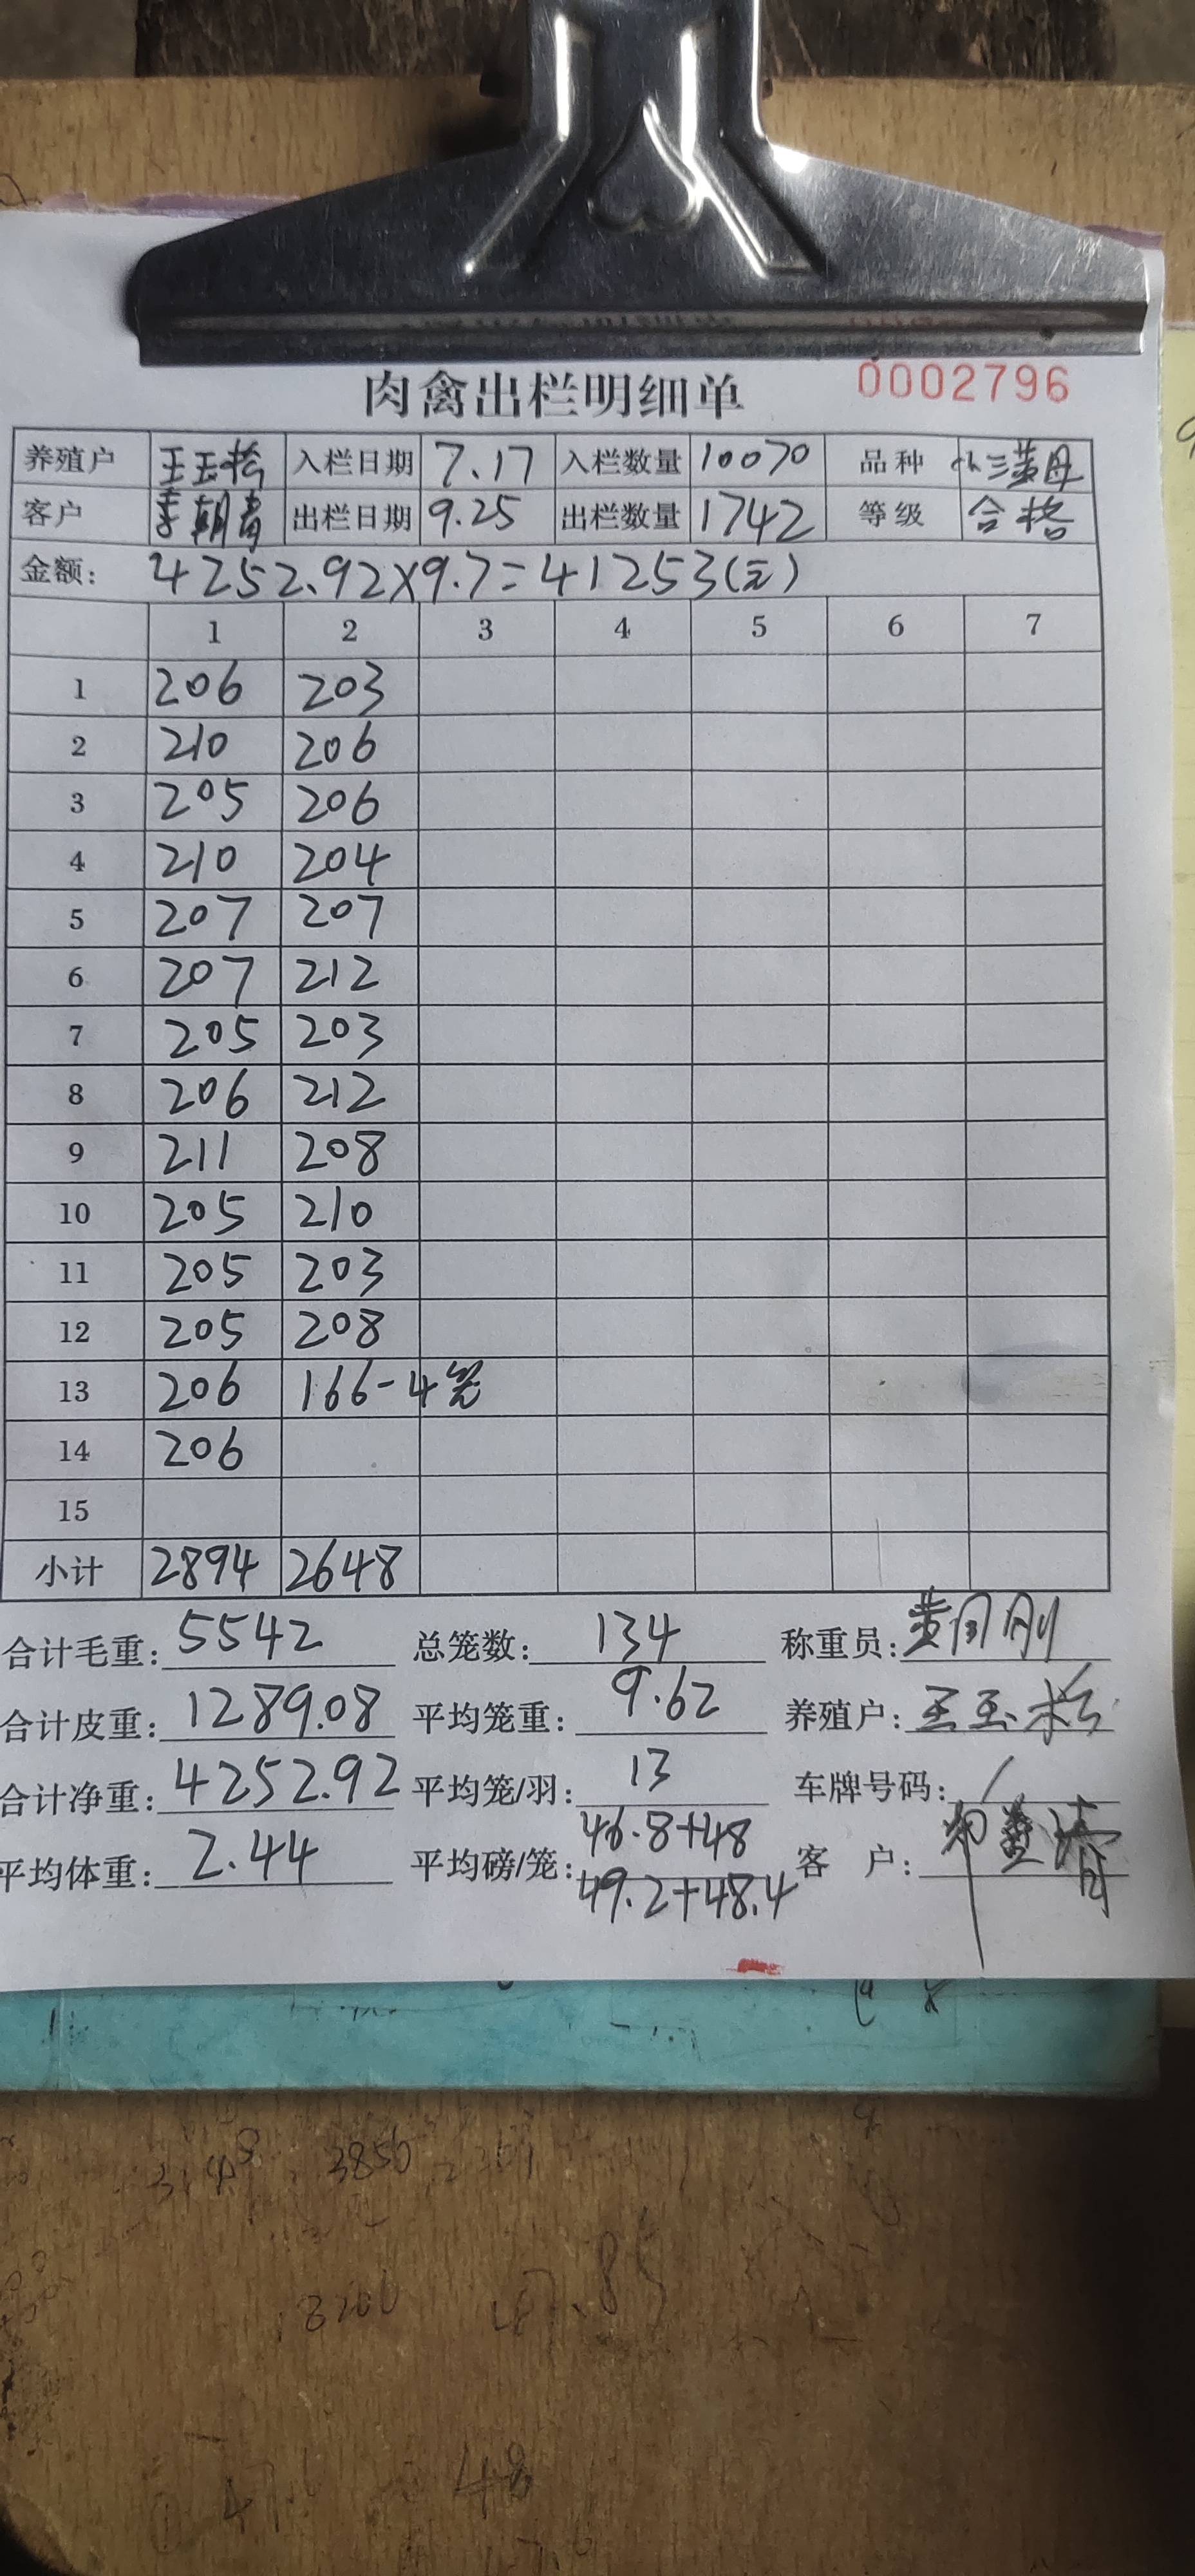 肉禽出栏明细单 0002796
养殖户 王玉松 入栏日期 7.17 入栏数量 10070 品种 小三黄母
客户 李朝青 出栏日期 9.25 出栏数量 1742 等级 合格
金额: 4252.92×9.7=41253(元)
1 2 3 4 5 6 7
1 206 203
2 210 206
3 205 206
4 210 204
5 207 207
6 207 212
7 205 203
8 206 212
9 211 208
10 205 210
11 205 203
12 205 208
13 206 166-4笼
14 206
15
小计 2894 2648
合计毛重: 5542 总笼数: 134 称重员:
合计皮重: 1289.08 平均笼重: 9.62 养殖户: 王玉松
合计净重: 4252.92 平均笼/羽: 13 车牌号码: /
平均体重: 2.44 平均磅/笼: 46.8+48 客 户:
49.2+48.4
3850
8200
48